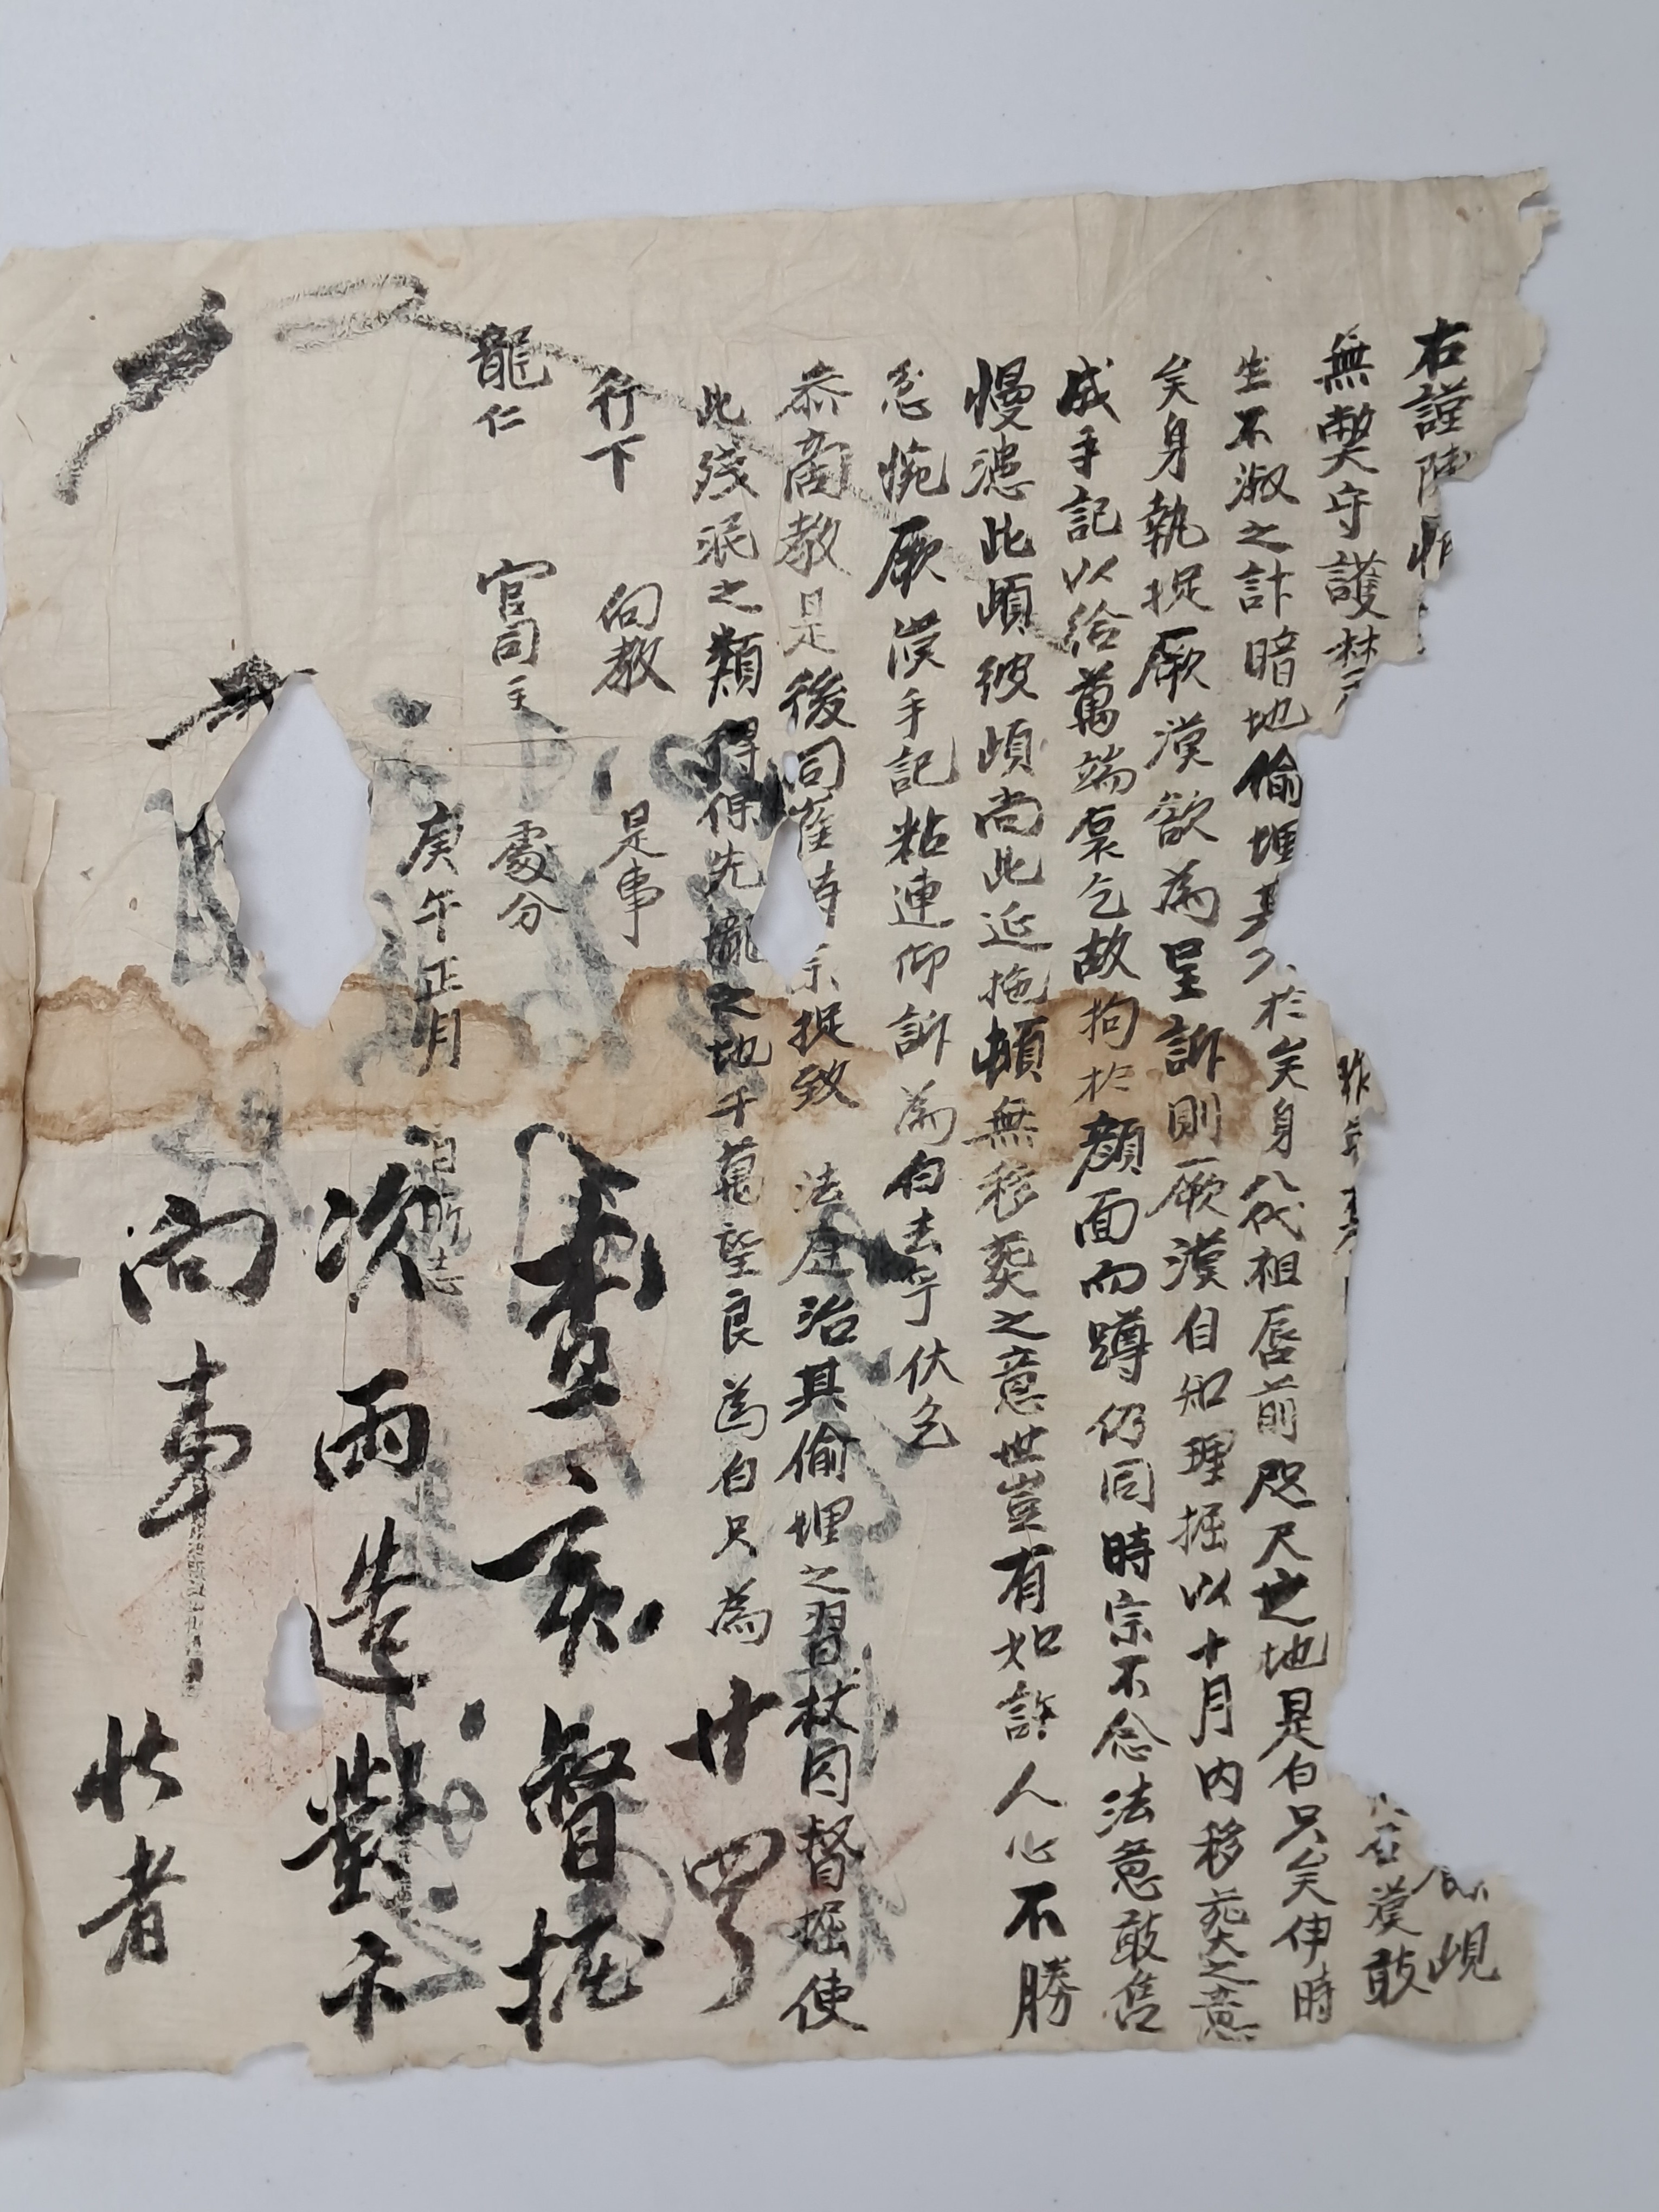 右謹陳 峴
無弊守護禁 漢敢
生不淑之計暗地偷埋其 於矣身八代祖脣前咫尺之地是白只矣伊時
矣身執捉厥漢欲為呈訴則厥漢自知理掘以十月內移葬之意
成手記以給萬端哀乞故拘於顔面而蹲仍同時宗不念法意敢售
慢濾此頉彼頉尚此延拖頓無移葬之意世豈有如許人心不勝
忿惋厥漢手記粘連仰訴為白去乎伏乞
叅商教是後同崔時宗捉致 法庭治其偷埋之習杖囚督掘使
此殘氓之類得保先壟之地千萬望良為白只為
行下 向教 是事
龍仁 官司主 處分
庚午正月 日所志
廿四
查實督掘
次兩造對卞
向事
狀者